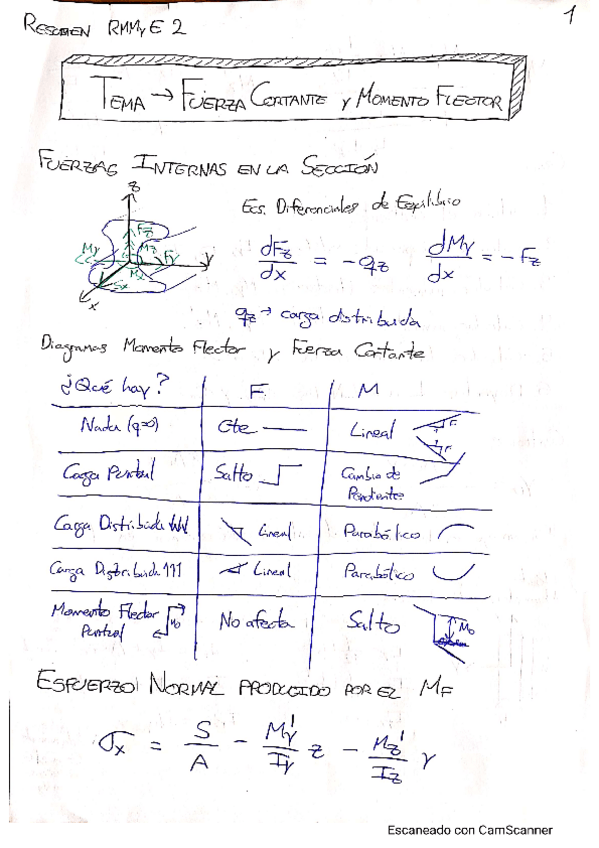 RESUMEN RMMyE 2
1
TEMA → FUERZA CORTANTE y MOMENTO FLECTOR
FUERZAS INTERNAS EN LA SECCIÓN
Ecs. Diferenciales de Equilibrio
z
Fz
My Mz Fy y
Mx
x
dFz/dx = -qz dMy/dx = -Fz
qz → carga distribuida
Diagramas Momento Flector y Fuerza Cortante
¿Qué hay? F M
Nada (q=0) Cte Lineal
Carga Puntual Salto Cambio de Pendientes
Carga Distribuida ↓↓↓ Lineal Parabólico
Carga Distribuida ↑↑↑ Lineal Parabólico
Momento Flector Puntual M0 No afecta Salto M0
ESFUERZO NORMAL PRODUCIDO POR EL MF
σx = S/A - My'/Iy z - Mz'/Iz y
Escaneado con CamScanner